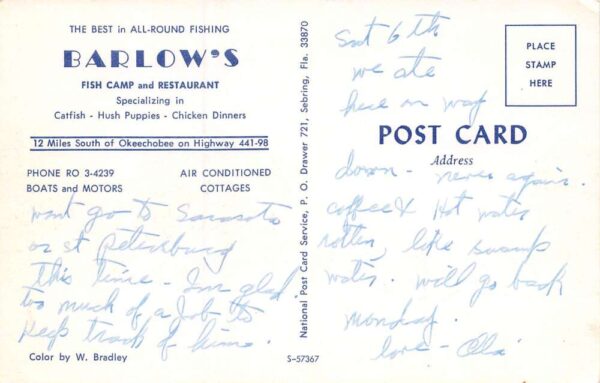 THE BEST in ALL-ROUND FISHING
BARLOW'S
FISH CAMP and RESTAURANT
Specializing in
Catfish - Hush Puppies - Chicken Dinners
12 Miles South of Okeechobee on Highway 441-98
PHONE RO 3-4239
BOATS and MOTORS
AIR CONDITIONED
COTTAGES
wont go to Sarasota
or st Petersburg
this time - I'm glad.
too much of a job to
keep track of him.
Color by W. Bradley
National Post Card Service, P. O. Drawer 721, Sebring, Fla. 33870
S-57367
Sat 6th
we ate
here on way
down - never again.
coffee & Hot water
rotten, like swamp
water. will go back
monday.
love - Ola
PLACE
STAMP
HERE
POST CARD
Address